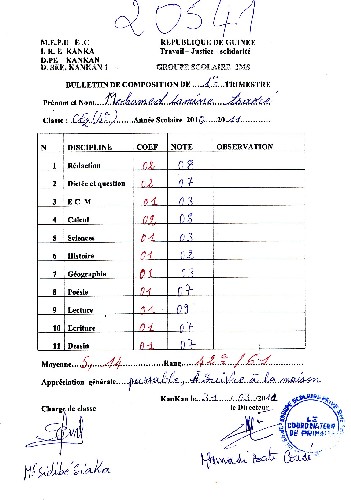 20541
M.E.P.U E.C REPUBLIQUE DE GUINEE
I. R. E KANKA Travail – Justice solidarité
D.PE KANKAN
D.SRE. KANKAN I - GROUPE SCOLAIRE IMS
BULLETIN DE COMPOSITION DE 1er TRIMESTRE
Prénom et Nom Mohamed Lamine
Classe : Année Scolaire 2010 2011
N DISCIPLINE COEF NOTE OBSERVATION
1 Rédaction 02 08
2 Dictée et question 02 07
3 E C M 01 03
4 Calcul 02 08
5 Sciences 01 03
6 Histoire 01 02
7 Géographie 01 03
8 Poésie 01 07
9 Lecture 01 09
10 Ecriture 01 07
11 Dessin 01 07
Moyenne 5,14 Rang 42e/61
Appréciation générale passable, à la maison
KanKan le 2011
Chargé de classe le Directeur
GROUPE SCOLAIRE
LE COORDINATEUR DU PRIMAIRE
Mr Sidibé Siaka